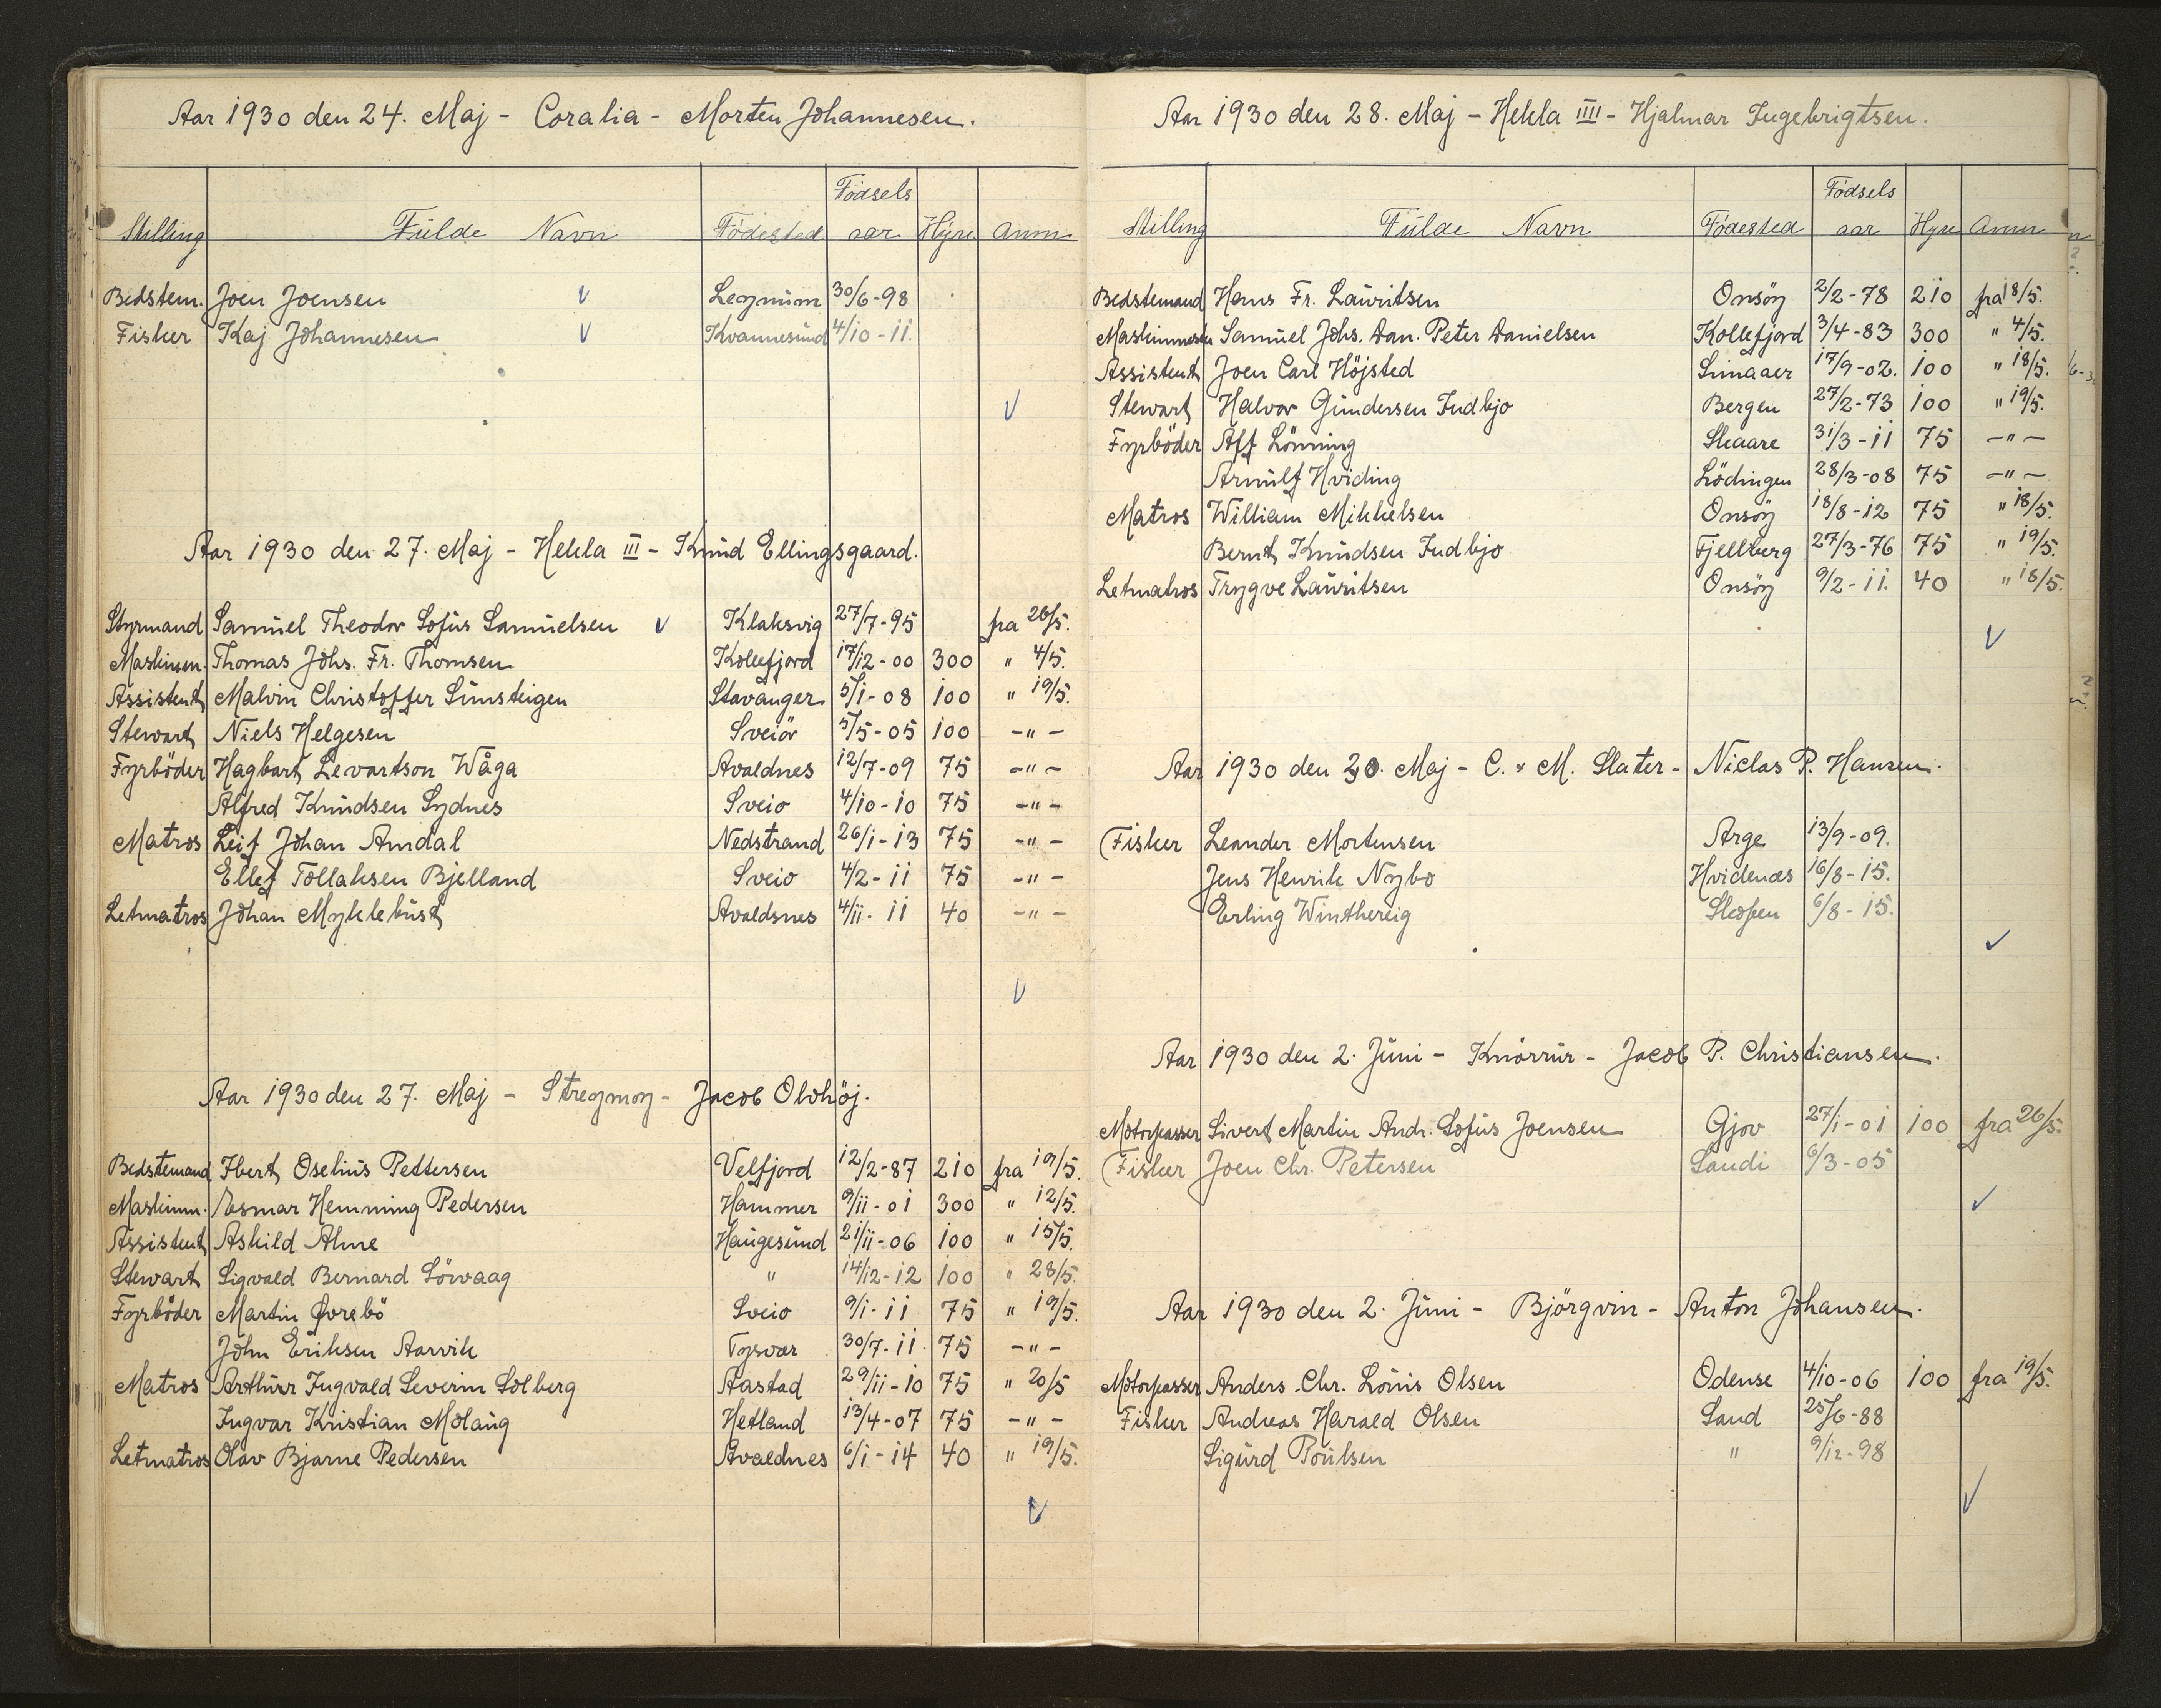 Aar 1930 den 24. Maj - Coralia - Morten Johannesen.
Födsels
Stilling Fulde Navn Födested aar Hyre Anm
Bedstem. Joen Joensen Leynum 30/6-98
Fisker Kaj Johannesen Kvannesund 4/10-11.
Aar 1930 den 27. Maj - Hekla III - Knud Ellingsgaard.
Styrmand Samuel Theodor Sofus Samuelsen Klaksvig 27/7-95 fra 26/5.
Maskinm. Thomas Johs. Fr. Thomsen Kollefjord 17/12-00 300 " 4/5.
Assistent Malvin Christoffer Simsteigen Stavanger 5/1-08 100 " 19/5.
Stewart Niels Helgesen Sveiör 5/5-05 100 -"-
Fyrböder Hagbart Levartson Wåga Avaldnes 12/7-09 75 -"-
Alfred Knudsen Sydnes Sveio 4/10-10 75 -"-
Matros Leif Johan Amdal Nedstrand 26/1-13 75 -"-
Ellef Tollaksen Bjelland Sveio 4/2-11 75 -"-
Letmatros Johan Myklebust Avaldsnes 4/11-11 40 -"-
Aar 1930 den 27. Maj - Streymoy - Jacob Olvhöj.
Bedstemand Ibert Oselius Pettersen Velfjord 12/2-87 210 fra 19/5.
Maskinm. Rasmar Hemming Pedersen Hammer 9/11-01 300 " 12/5.
Assistent Askild Alme Haugesund 21/11-06 100 " 15/5.
Stewart Sigvald Bernard Sörvaag " 14/12-12 100 " 28/5.
Fyrböder Martin Øvrebö Sveio 9/1-11 75 " 19/5.
John Eriksen Aarvik Tysvær 30/7-11 75 -"-
Matros Arthur Ingvald Severin Solberg Aastad 29/11-10 75 " 20/5
Ingvar Kristian Molaug Hetland 13/4-07 75 -"-
Letmatros Olav Bjarne Pedersen Avaldnes 6/1-14 40 " 19/5.
Aar 1930 den 28. Maj - Hekla IIII - Hjalmar Ingebrigtsen.
Födsels
Stilling Fulde Navn Födested aar Hyre Anm
Bedstemand Hans Fr. Lauritsen Onsöy 2/2-78 210 fra 18/5.
Maskinmester Samuel Johs. Dan. Peter Danielsen Kollefjord 3/4-83 300 " 4/5.
Assistent Joen Carl Höjsted Simaaer 17/9-02. 100 " 18/5.
Stewart Halvor Gundersen Indbjo Bergen 27/2-73 100 " 19/5.
Fyrböder Aff Lönning Skaare 31/3-11 75 -"-
Arnulf Hviding Lödingen 28/3-08 75 -"-
Matros William Mikkelsen Onsöy 18/8-12 75 " 18/5.
Bernt Knudsen Indbjo Fjellberg 27/3-76 75 " 19/5.
Letmatros Trygve Lauritsen Onsöy 9/2-11. 40 " 18/5.
Aar 1930 den 30. Maj - C. & M. Slater - Niclas P. Hansen.
Fisker Leander Mortensen Arge 13/9-09.
Jens Henrik Nybo Hvidenæs 16/8-15.
Erling Winthereig 6/8-15.
Aar 1930 den 2. Juni - Knörrur - Jacob P. Christiansen.
Motorpasser Sivert Martin Andr. Sofus Joensen Gjov 27/1-01 100 fra 26/5.
Fisker Joen Chr. Petersen Sandi 6/3-05
Aar 1930 den 2. Juni - Björgvin - Anton Johansen.
Motorpasser Anders Chr. Louis Olsen Odense 4/10-06 100 fra 19/5.
Fisker Andreas Harald Olsen Sand 25/6-88
Sigurd Poulsen " 9/12-98